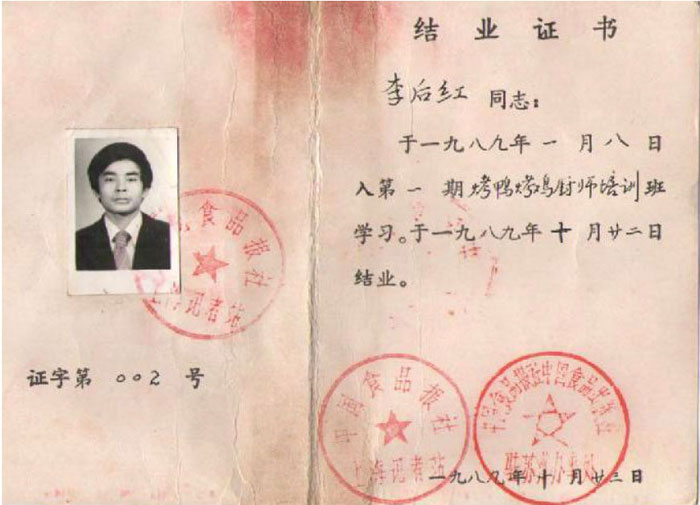 食品报社
上海记者站
证字第 002 号
结业证书
李后红 同志：
于一九八九年一月八日
入第一期烤鸭烤鸡厨师培训班
学习。于一九八九年十月廿二日
结业。
中国食品报社
上海记者站
中国食品报社中国食品
一九八九年十月廿三日